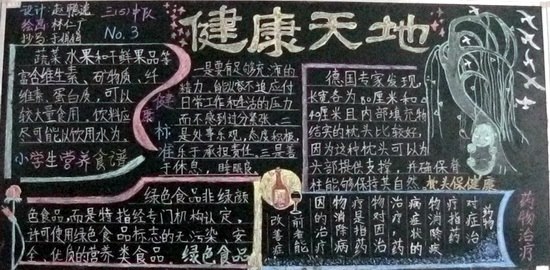 设计:赵
三(5)中队
绘画:林仁广
抄写:于娟娟
No.3
健康天地
蔬菜水果和干鲜果品等
富含维生素、矿物质、纤
维素、蛋白质,可以
较大量食用,饮料应
尽可能以饮用水为
小学生营养食谱
健
康
标
准
一是要有足够充沛的
精力,能从容不迫应付
日常工作和生活的压力
而不感到过分紧张、二
是处事乐观,态度积极,
乐于承担责任。三是善
于休息,睡眠良
德国专家发现,
长宽各为80厘米和
40厘米且内部填充物
结实的枕头比较好,
因为这种枕头可以为
头部提供支撑,并确保脊
柱能够保持其自然 枕头保健康
绿色食品非绿颜
色食品,而是特指经专门机构认定,
许可使用绿色食品标志的无污染、安
全、优质的营养类食品 绿色食品
药物
对症治疗
指药物消除
疾病症状的
治疗,药物
对因治疗是
指药物消除
病因的治疗
前者能
改善症
药物治疗